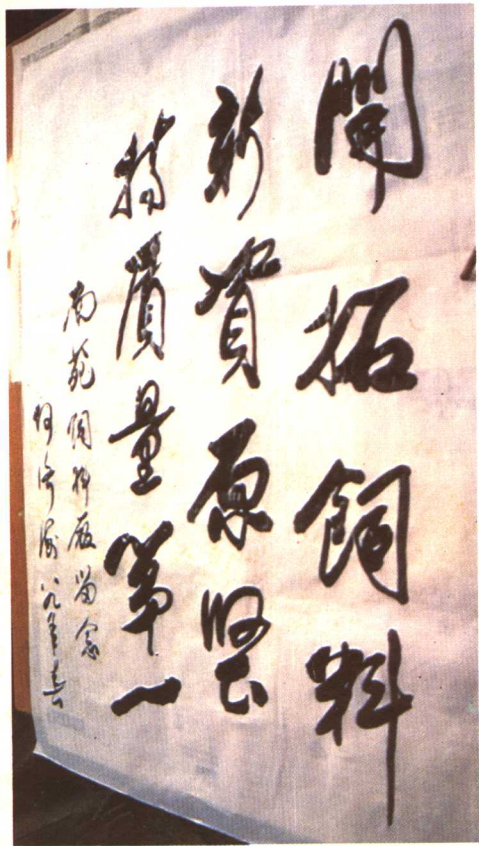 開拓飼料
新資原堅
持質量第一
南苑飼料廠留念
何濟海 八九年春